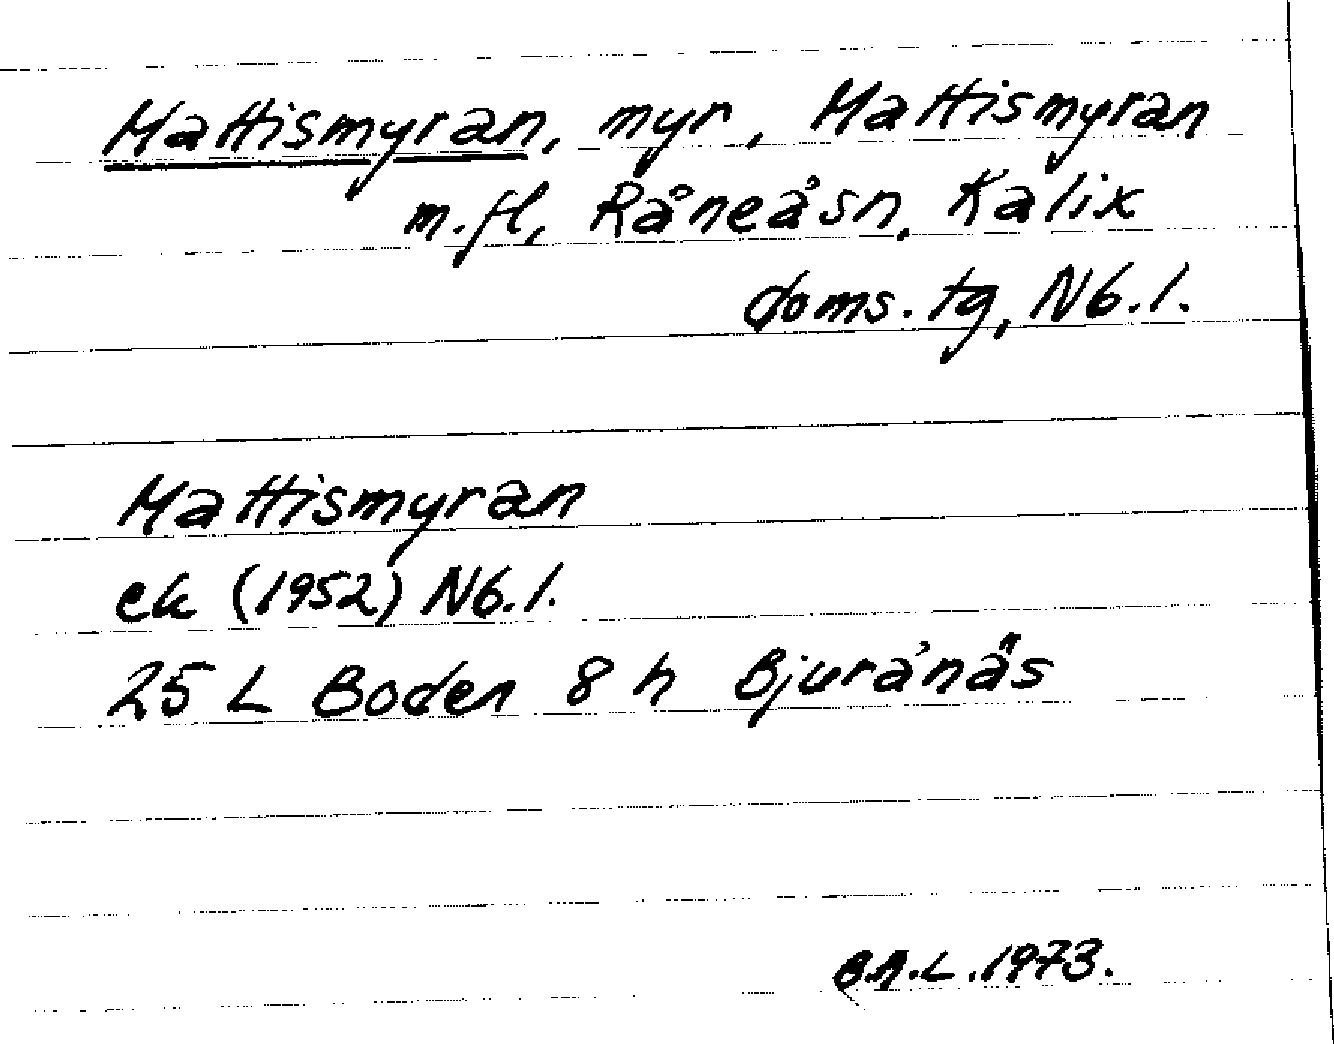 Mattismyran, myr, Mattismyran
m.fl, Råneå sn, Kalix
doms. tg, Nb. l.
Mattismyran
ek (1952) Nb. l.
25 L Boden 8 h Bjurånäs
B.A.L. 1973.